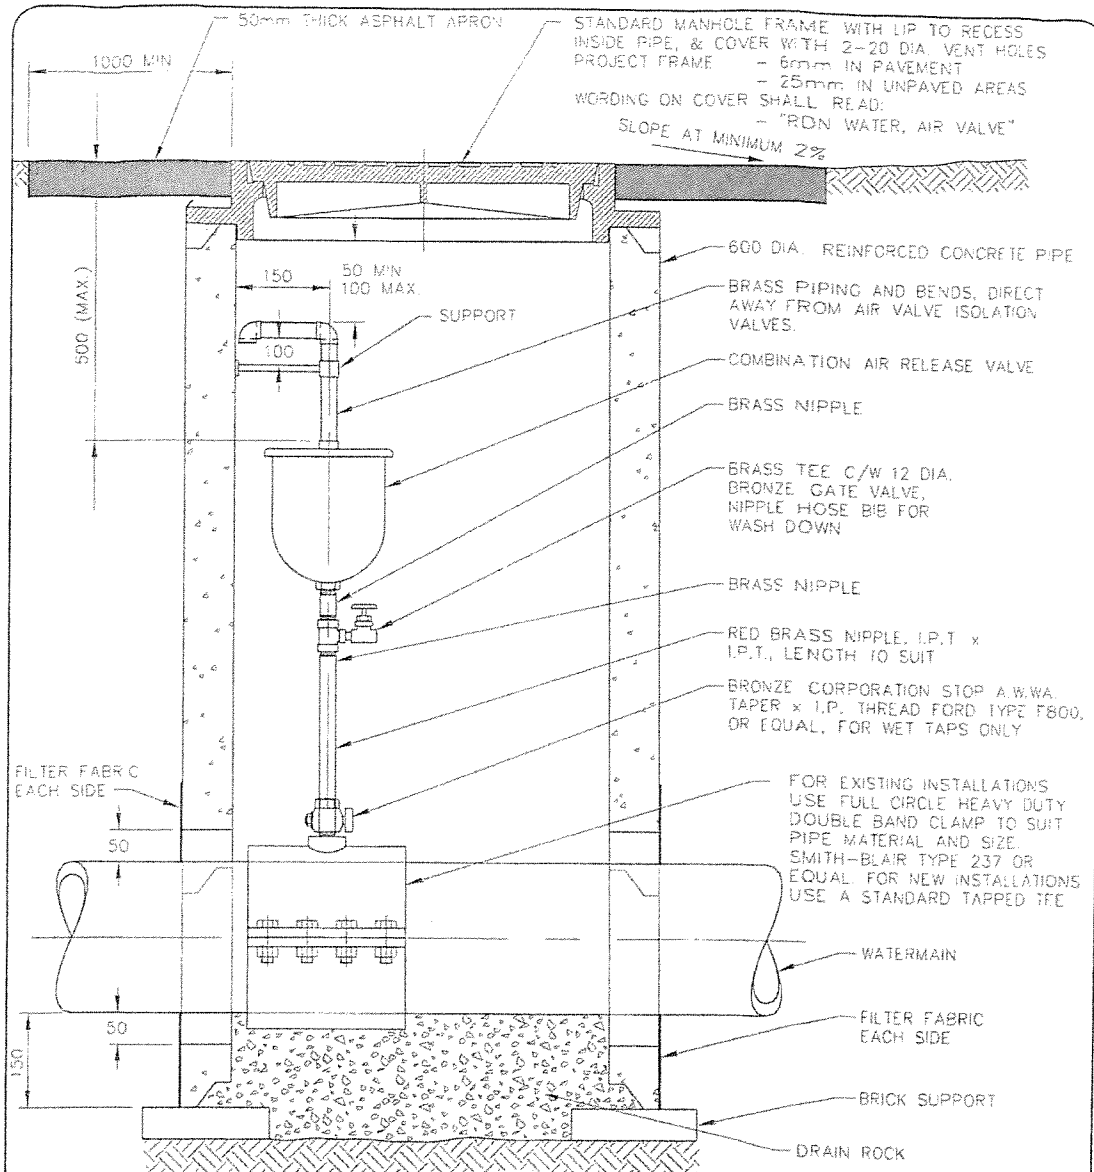 50mm THICK ASPHALT APRON
STANDARD MANHOLE FRAME WITH LIP TO RECESS
INSIDE PIPE, & COVER WITH 2-20 DIA. VENT HOLES
PROJECT FRAME - 6mm IN PAVEMENT
- 25mm IN UNPAVED AREAS
WORDING ON COVER SHALL READ:
- "RDN WATER, AIR VALVE"
1000 MIN
SLOPE AT MINIMUM 2%
600 DIA. REINFORCED CONCRETE PIPE
150
50 MIN
100 MAX.
BRASS PIPING AND BENDS, DIRECT
AWAY FROM AIR VALVE ISOLATION
VALVES.
500 (MAX.)
SUPPORT
100
COMBINATION AIR RELEASE VALVE
BRASS NIPPLE
BRASS TEE C/W 12 DIA.
BRONZE GATE VALVE,
NIPPLE HOSE BIB FOR
WASH DOWN
BRASS NIPPLE
RED BRASS NIPPLE, I.P.T x
I.P.T., LENGTH TO SUIT
BRONZE CORPORATION STOP A.W.WA.
TAPER x I.P. THREAD FORD TYPE F800,
OR EQUAL, FOR WET TAPS ONLY
FILTER FABRIC
EACH SIDE
FOR EXISTING INSTALLATIONS
USE FULL CIRCLE HEAVY DUTY
DOUBLE BAND CLAMP TO SUIT
PIPE MATERIAL AND SIZE.
SMITH-BLAIR TYPE 237 OR
EQUAL. FOR NEW INSTALLATIONS
USE A STANDARD TAPPED TEE
50
WATERMAIN
50
150
FILTER FABRIC
EACH SIDE
BRICK SUPPORT
DRAIN ROCK